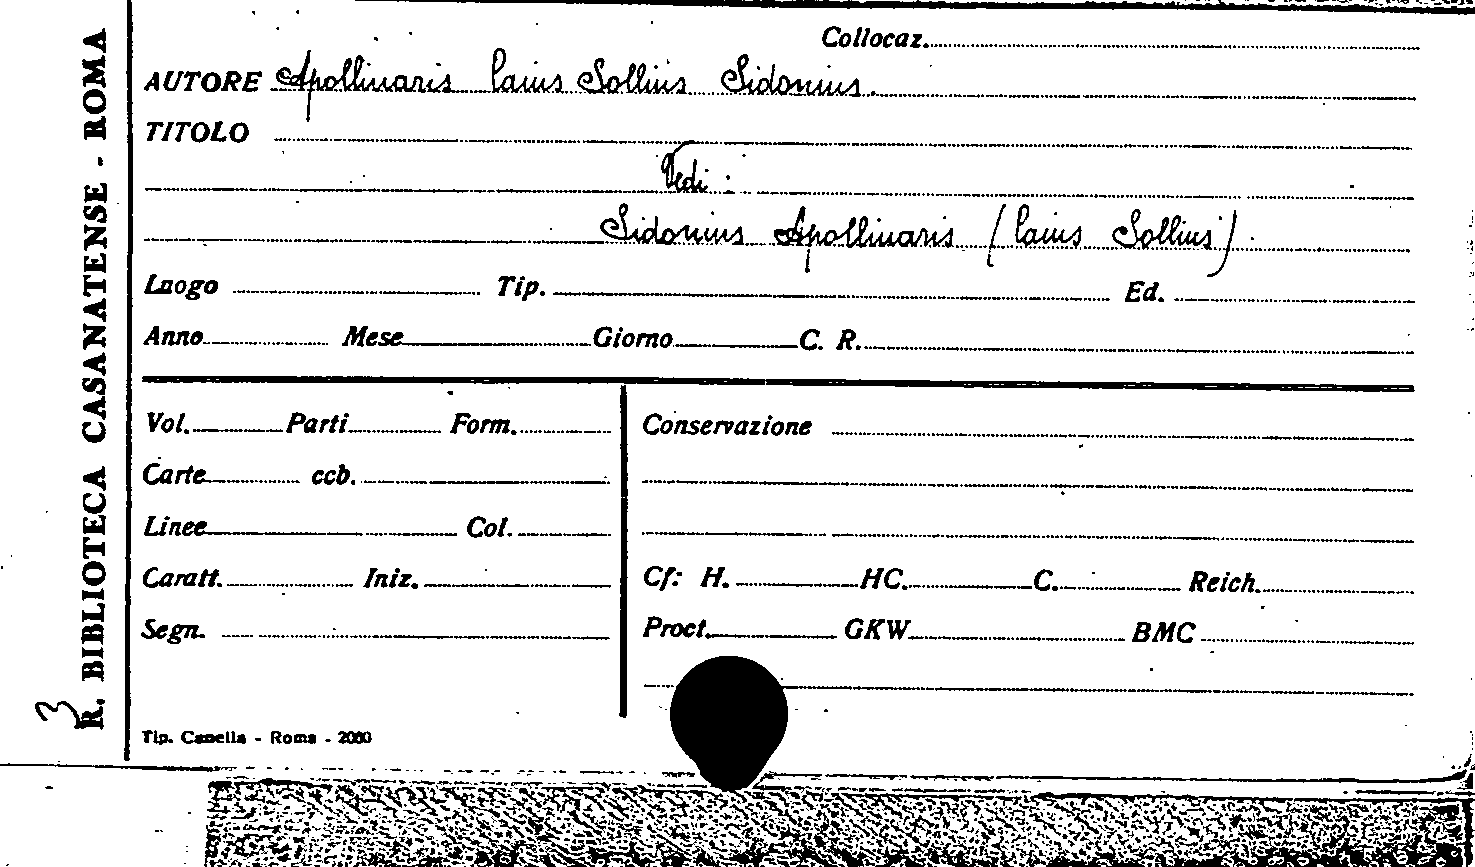 R. BIBLIOTECA CASANATENSE - ROMA
3
Collocaz.
AUTORE Apollinaris Caius Sollius Sidonius.
TITOLO
Vedi :
Sidonius Apollinaris (Caius Sollius).
Luogo Tip. Ed.
Anno Mese Giorno C. R.
Vol. Parti Form.
Carte ccb.
Linee Col.
Caratt. Iniz.
Segn.
Conservazione
Cf: H. HC. C. Reich.
Proct. GKW BMC
Tip. Canella - Roma - 2000